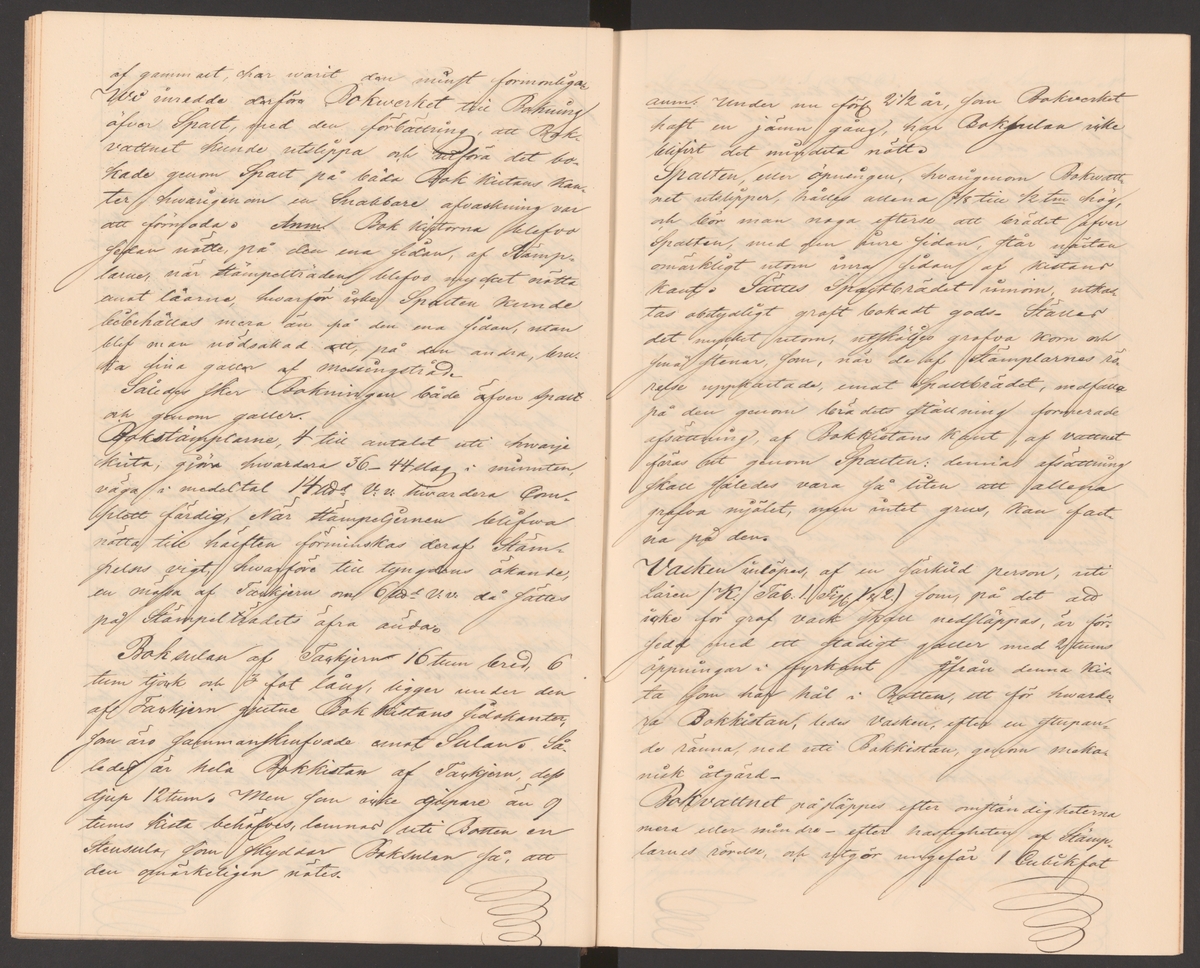 af gammalt, har warit den minst förmonliga.
Wi inredde derföre Bokwerket till Bokning
öfver Spalt, med den förbättring, att Bok-
vattnet kunde utslippa och utföra det bo-
kade genom Spalt på båda Bok kistans kan-
ter hwarigenom en Snabbare afvaskning var
att förmoda. Anm. Bok kistorna blefvo
sedan nötte, på den ena sidan, af Stämp-
larne, när stämpelträden blefvo mycket nötta
emot låarna, hwarför icke Spalten kunde
bibehållas mera än på den ena sidan, utan
blef man nödsakad att, på den andra, bru-
ka fina galler af messingstråd.
Således sker Bokningen både öfver spalt
och genom galler.
Bokstämplarne, 4 till antalet uti hwarje
kista, gjöra hwardera 36–44 slag i minuten,
väga i medeltal 14 L℔ V: v. hwardera Com-
plett färdig. När stämpeljernen blifwa
nötta till hälften förminskas deraf Stäm-
pelns vigt, hwarföre till tyngdens ökande,
en massa af Tackjern om 6 L℔ V.v. då sättes
på Stämpelträdets öfra ända.
Boksulan af Tackjern 16 tum bred, 6
tum tjock och 3 fot lång, ligger under den
af Tackjern gjutne Bok kistans sidokanter,
som äro sammanskrufvade emot Sulan. Så-
ledes är hela Bokkistan af Tackjern, dess
djup 12 tum. Men som icke djupare än 9
tums kista behöfves, lemnas uti Botten en
Stensula, som skyddar Boksulan så, att
den omärkeligen nötes.
anm. Under nu förfl 2 1/2 år, som Bokverket
haft en jämn gång, har Boksulan icke
blifvit det mindsta nött.
Spalten, eller öpningen, hvarigenom Bokwatt-
net utslipper, hålles allena 1/3 till 1/2 tm hög,
och bör man noga efterse att brädet öfver
Spalten, med den inre sidan, står nästan
omärkligt utom inra sidan af kistans
kant. Sättes Spaltbrädet innom, utkas-
tas obetydligt groft bokadt gods. Ställes
det mycket utom, utsköljes grofva korn och
små stenar, som, när de af Stämplarnes rö-
relse uppkastade, emot Spaltbrädet, nedfalla
på den genom brädets ställning formerade
afsättning, af Bokkistans kant, af vattnet
föras ut genom Spalten: denna afsättning
skall således vara så liten att allena
grofva mjölet, men intet grus, kan fast-
na på den.
Vasken inlöpes, af en särkild person, uti
Laren /: K. / Tab. 1. / Fig. 1 & 2.) som, på det att
icke för graf vask skall nedsläppas, är för-
sedt med ett stadigt galler med 2 tums
öppningar i fyrkant. Ifrån denna kis-
ta som har hål i Botten, ett för hwarde-
ra Bokkistan, ledes vasken, efter en stupan-
de ränna, ned uti Bokkisten, genom meka-
nisk åtgärd.–
Bokvattnet påsläppes efter omständigheterna
mera eller mindre – efter hastigheten af Stämp-
larnes rörelse, och utgör ungefär 1 Cubikfot